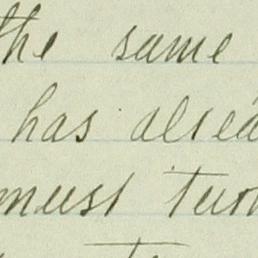 the same
has alrea
must turn